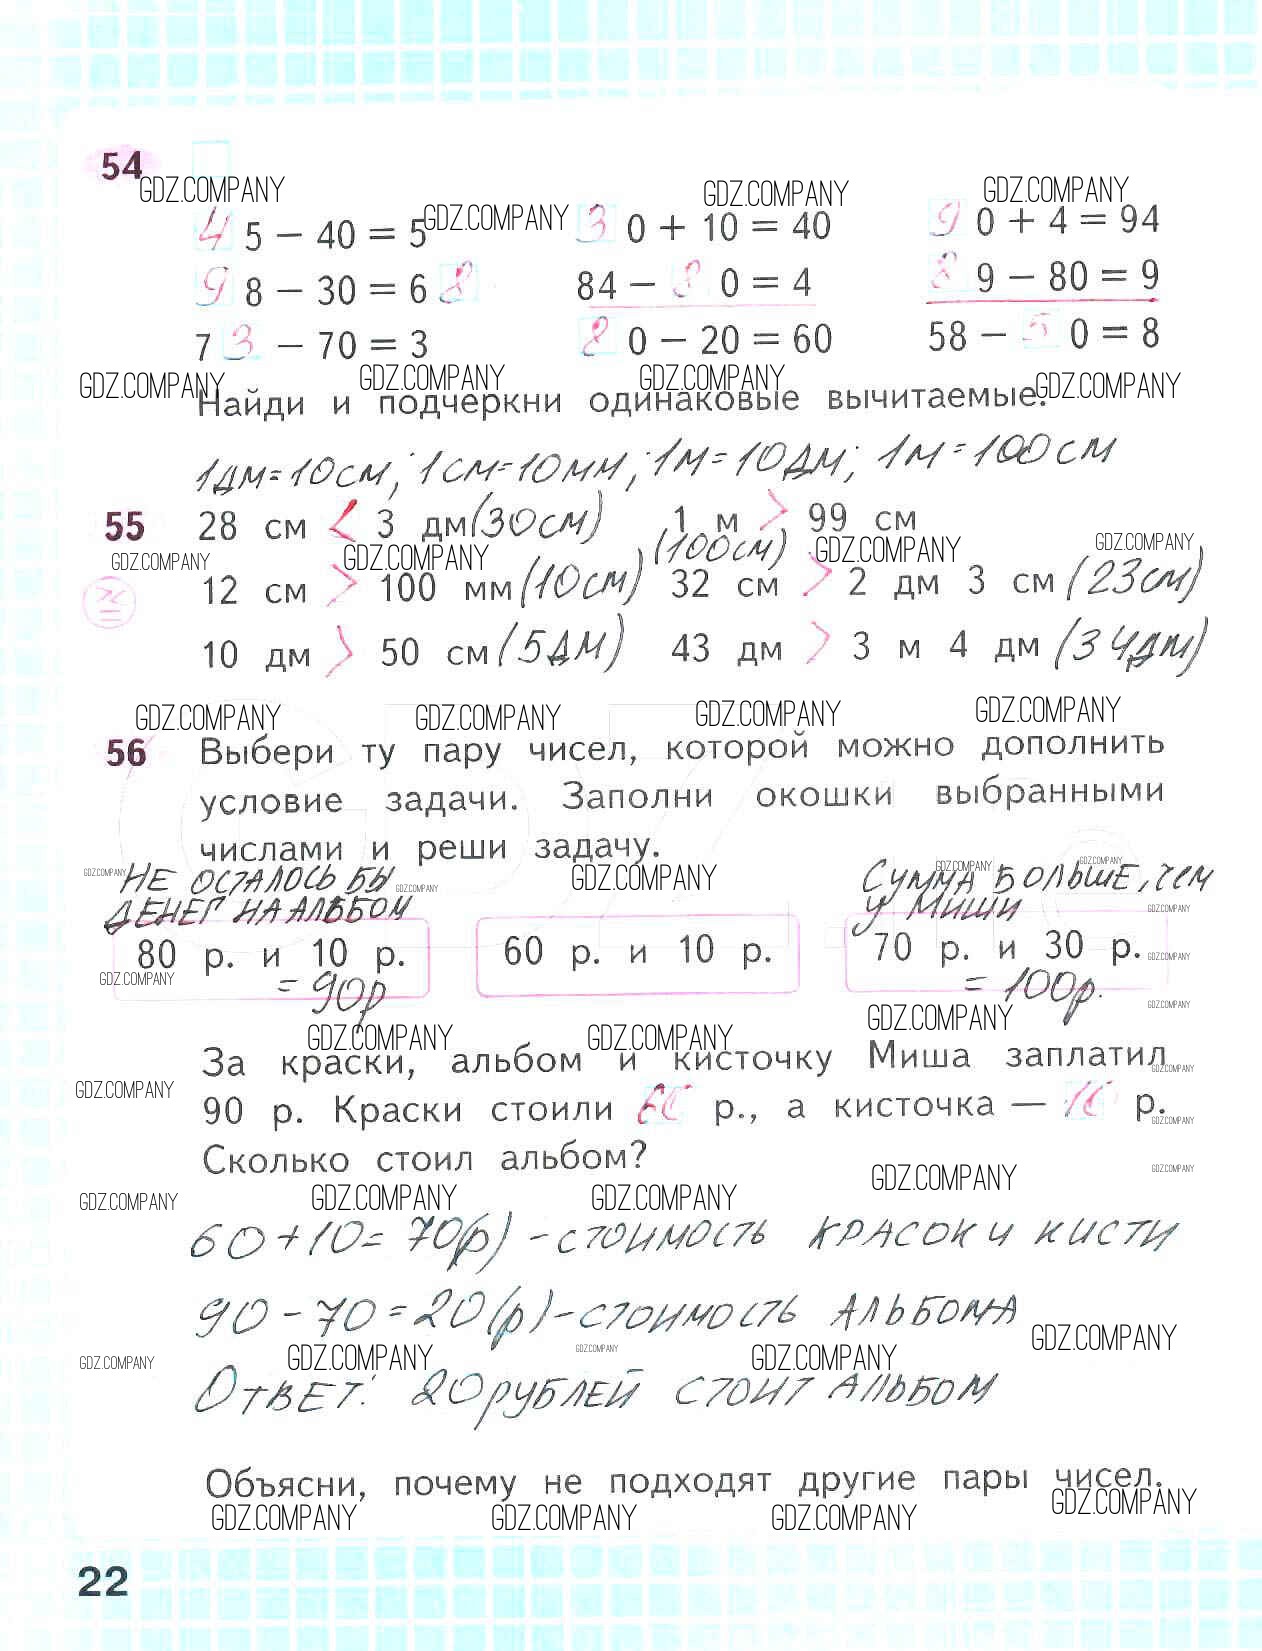 54
GDZ.COMPANY GDZ.COMPANY GDZ.COMPANY GDZ.COMPANY
45 − 40 = 5 30 + 10 = 40 90 + 4 = 94
98 − 30 = 68 84 − 80 = 4 89 − 80 = 9
73 − 70 = 3 80 − 20 = 60 58 − 50 = 8
GDZ.COMPANY GDZ.COMPANY GDZ.COMPANY GDZ.COMPANY
Найди и подчеркни одинаковые вычитаемые.
1дм=10см; 1см=10мм; 1м=10дм; 1м=100см
55 28 см < 3 дм(30см) 1 м > 99 см
(100см)
GDZ.COMPANY GDZ.COMPANY GDZ.COMPANY GDZ.COMPANY
12 см > 100 мм(10см) 32 см > 2 дм 3 см (23см)
10 дм > 50 см(5дм) 43 дм > 3 м 4 дм (34дм)
GDZ.COMPANY GDZ.COMPANY GDZ.COMPANY GDZ.COMPANY
56 Выбери ту пару чисел, которой можно дополнить
условие задачи. Заполни окошки выбранными
числами и реши задачу.
GDZ.COMPANY GDZ.COMPANY GDZ.COMPANY GDZ.COMPANY GDZ.COMPANY
Не осталось бы Сумма больше, чем
денег на альбом у Миши
GDZ.COMPANY
80 р. и 10 р. 60 р. и 10 р. 70 р. и 30 р.
GDZ.COMPANY
= 90р = 100р.
GDZ.COMPANY GDZ.COMPANY
GDZ.COMPANY GDZ.COMPANY GDZ.COMPANY
За краски, альбом и кисточку Миша заплатил
GDZ.COMPANY GDZ.COMPANY
90 р. Краски стоили 60 р., а кисточка — 10 р.
GDZ.COMPANY
Сколько стоил альбом?
GDZ.COMPANY
GDZ.COMPANY GDZ.COMPANY GDZ.COMPANY GDZ.COMPANY
60+10=70(р) -стоимость красок и кисти
90-70=20(р)-стоимость альбома
GDZ.COMPANY GDZ.COMPANY GDZ.COMPANY GDZ.COMPANY GDZ.COMPANY
Ответ: 20 рублей стоит альбом
Объясни, почему не подходят другие пары чисел.
GDZ.COMPANY GDZ.COMPANY GDZ.COMPANY GDZ.COMPANY
22